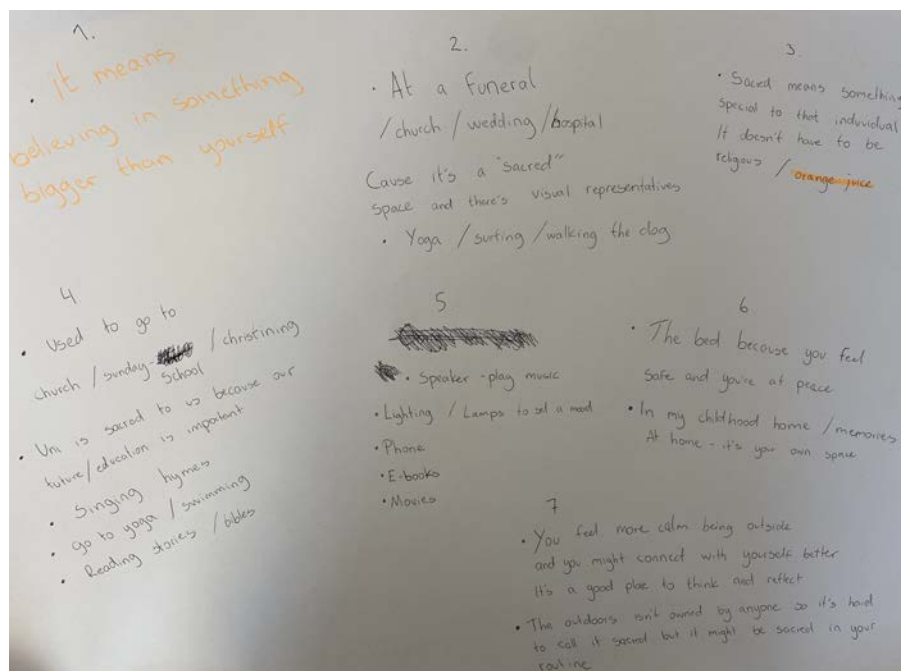 1.
• It means
believing in something
bigger than yourself
2.
• At a funeral
/church / wedding / hospital
Cause it's a "sacred"
space and there's visual representatives
• Yoga / surfing / walking the dog
3.
• Sacred means something
special to that induvidual
It doesn't have to be
religous / orange juice
4.
• Used to go to
church / sunday- / christining
School
• Uni is sacred to us because our
future/education is important
• Singing hymes
• go to yoga / swimming
• Reading stories / bibles
5
• Speaker - play music
• Lighting / Lamps to set a mood
• Phone
• E-books
• Movies
6
• The bed because you feel
safe and you're at peace
• In my childhood home / memories
At home - it's your own space
7
• You feel more calm being outside
and you might connect with yourself better
It's a good place to think and reflect
• The outdoors isn't owned by anyone so it's hard
to call it sacred but it might be sacred in your
routine